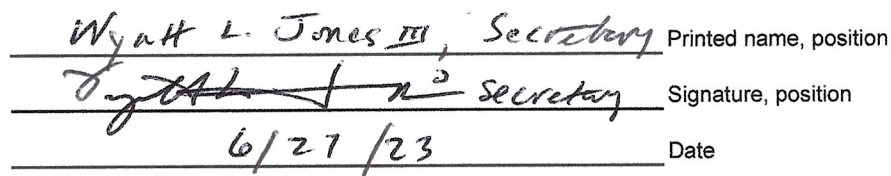 Wyatt L. Jones III, Secretary Printed name, position
Secretary Signature, position
6/27/23 Date